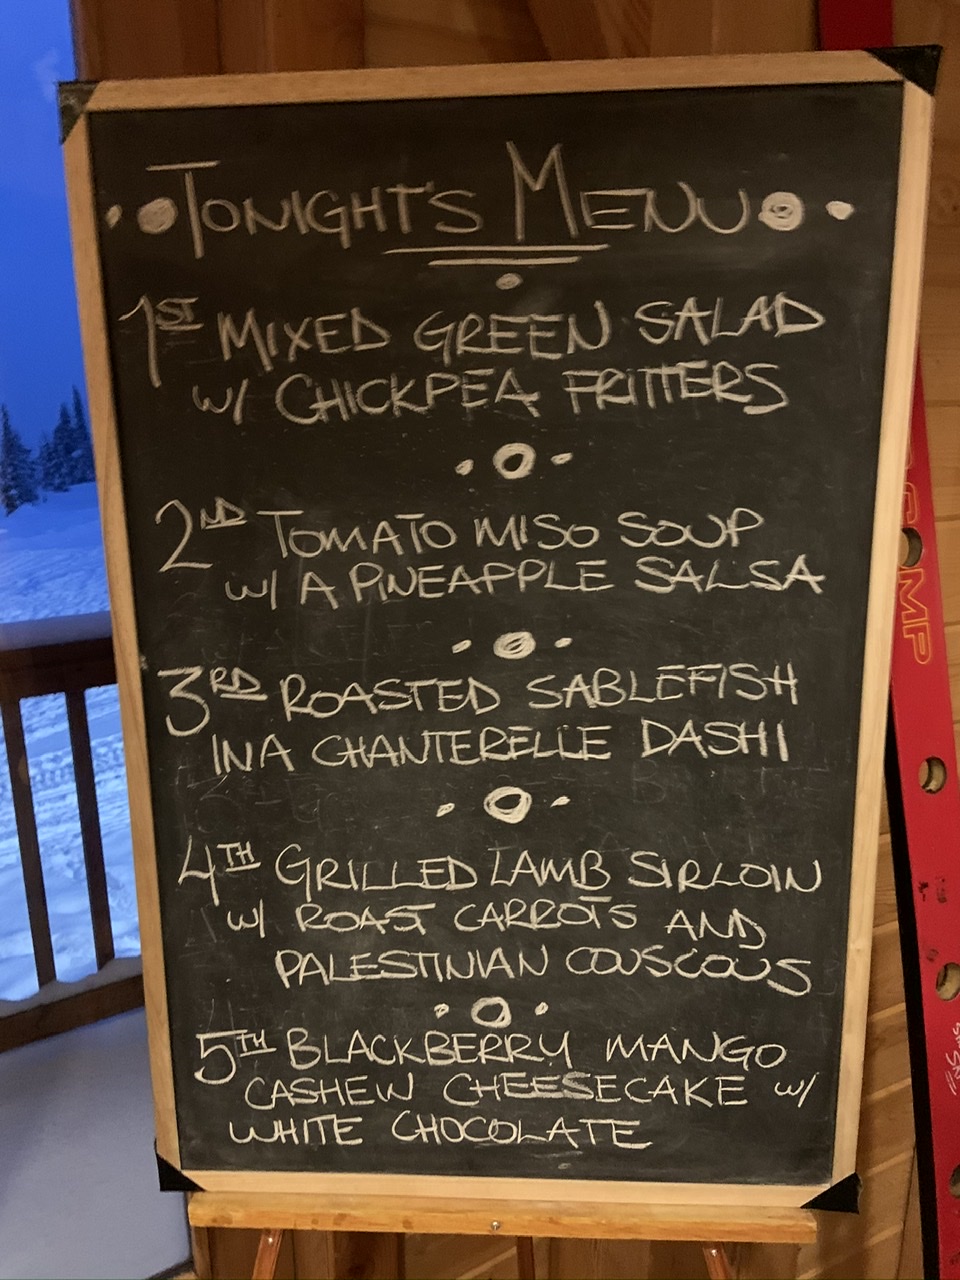 TONIGHT'S MENU
1ST MIXED GREEN SALAD
W/ CHICKPEA FRITTERS
2ND TOMATO MISO SOUP
W/ A PINEAPPLE SALSA
3RD ROASTED SABLEFISH
IN A CHANTERELLE DASHI
4TH GRILLED LAMB SIRLOIN
W/ ROAST CARROTS AND
PALESTINIAN COUSCOUS
5TH BLACKBERRY MANGO
CASHEW CHEESECAKE W/
WHITE CHOCOLATE